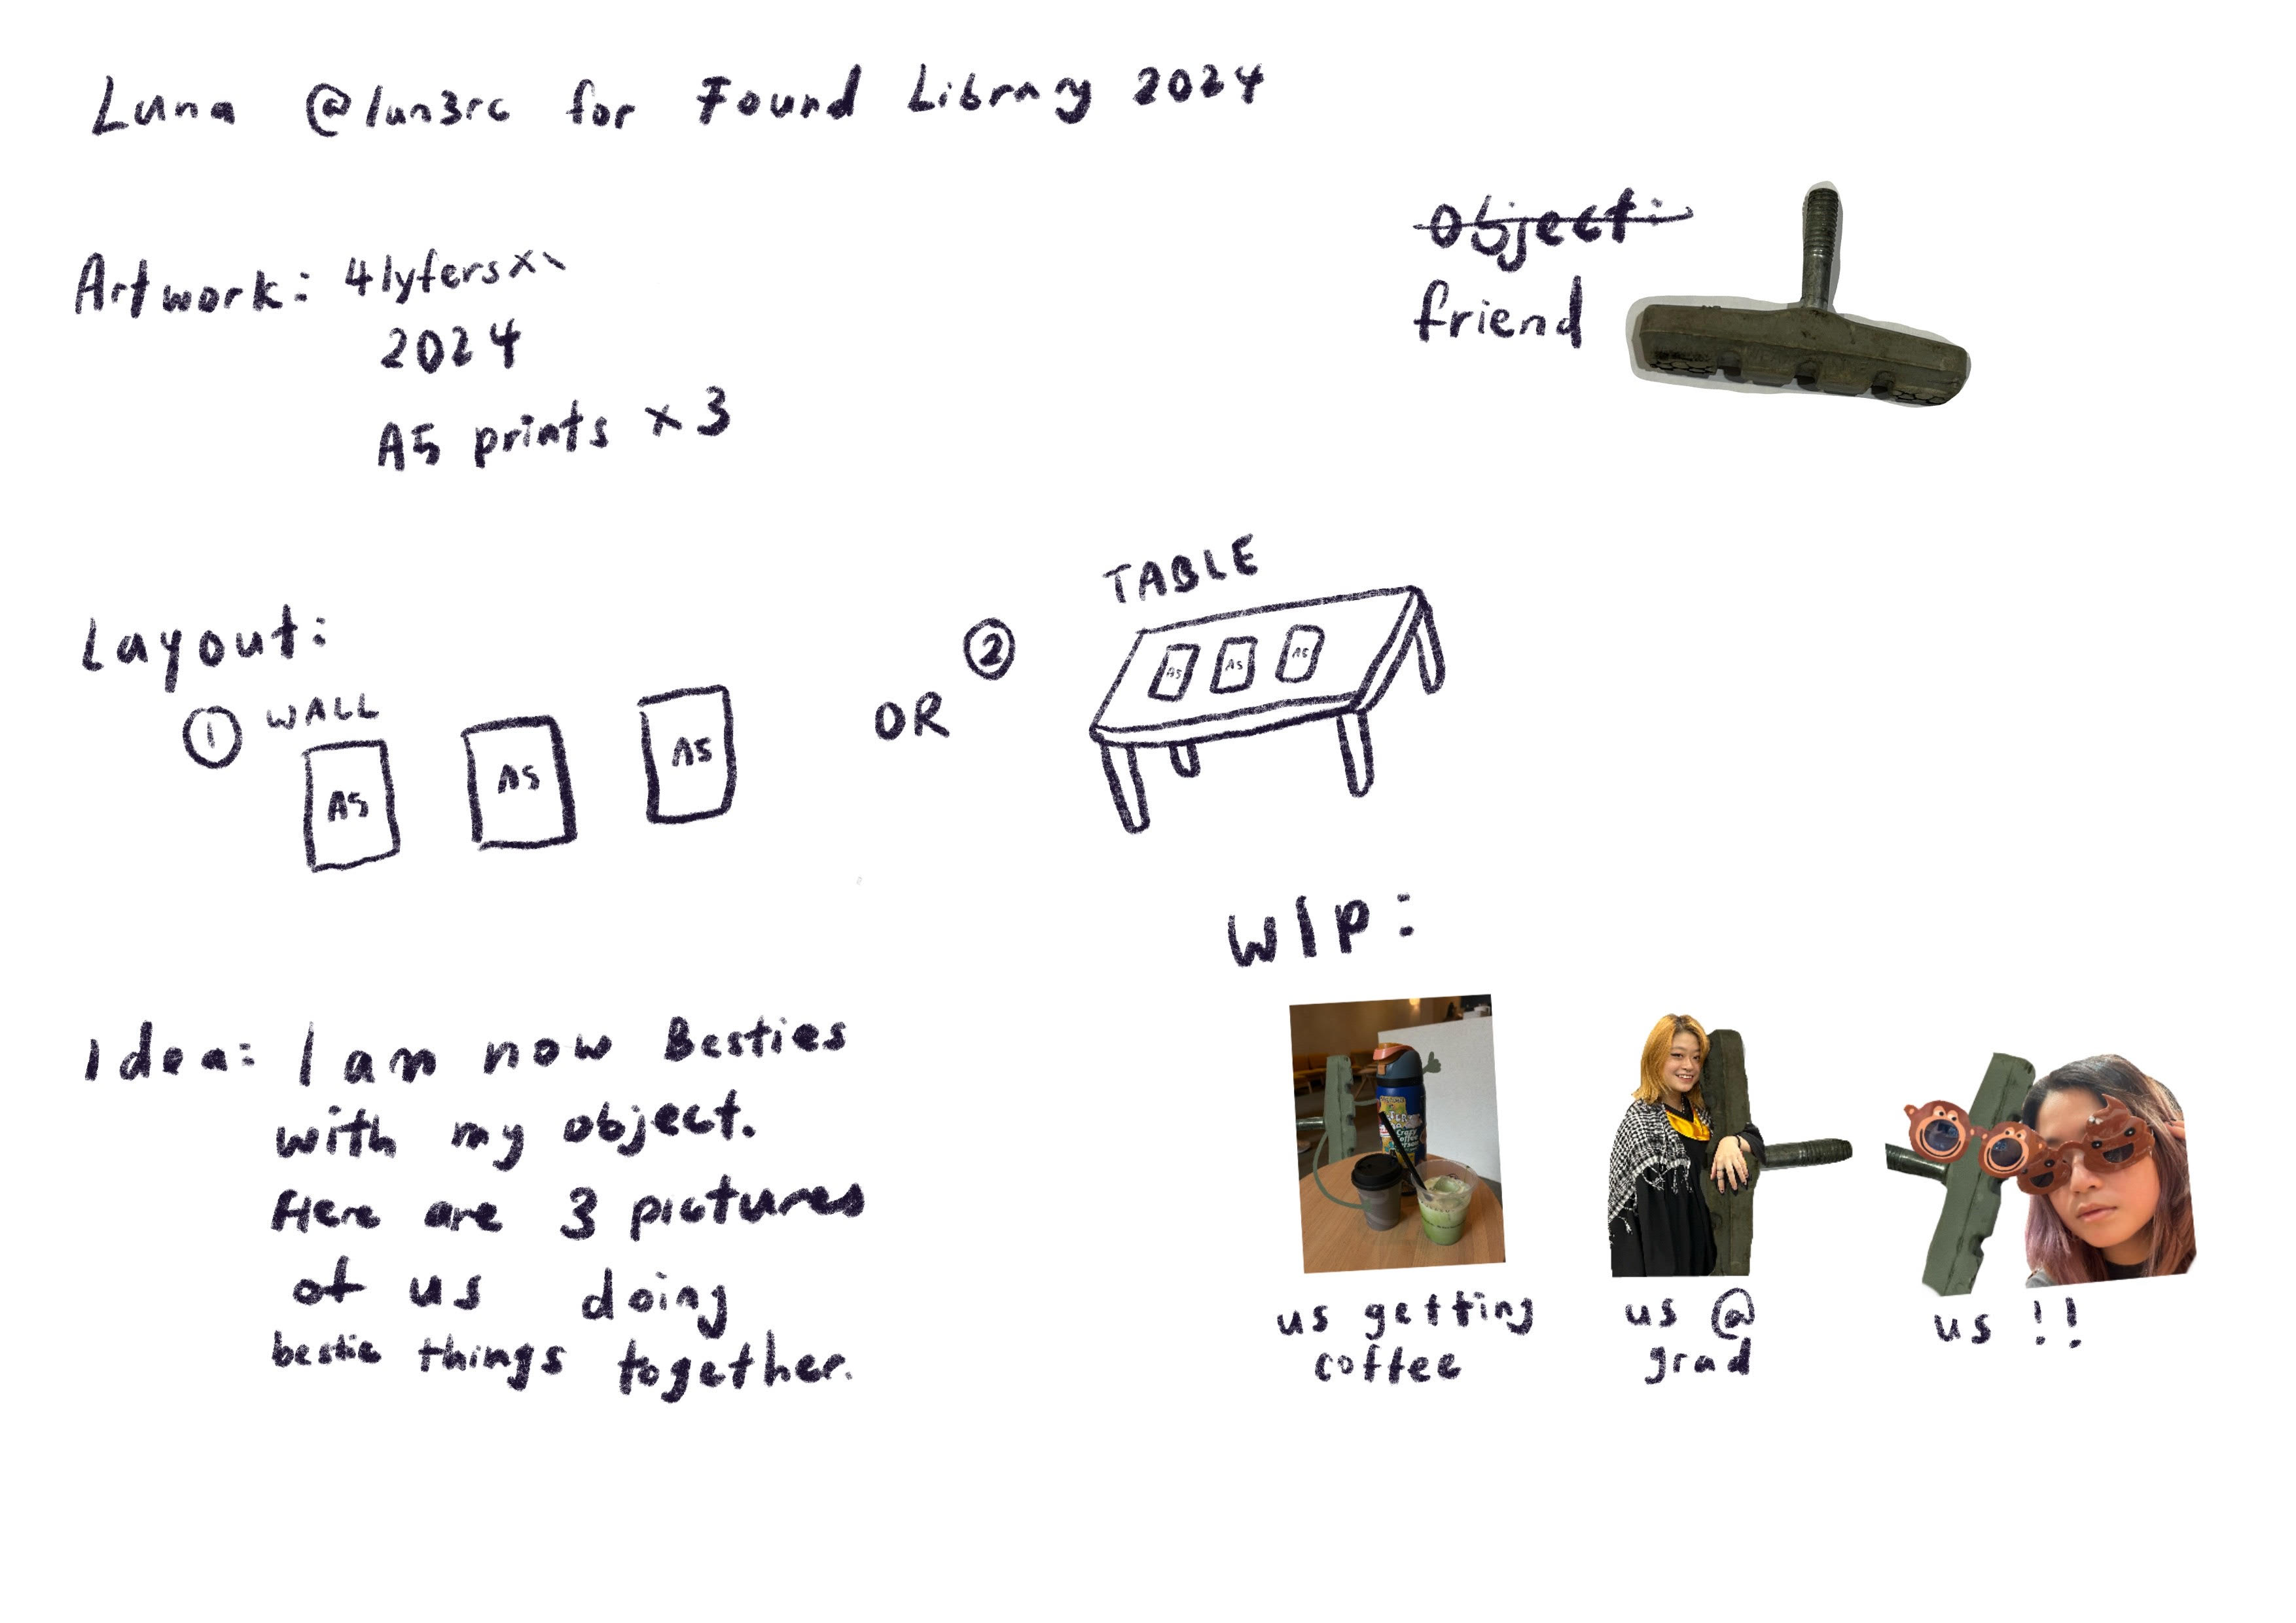 Luna @lun3rc for Found Library 2024
Object:
friend
Artwork: 4lyfersxx
2024
A5 prints x 3
Layout:
① WALL
A5
A5
A5
OR
② TABLE
A5
A5
A5
Idea: I am now Besties
with my object.
Here are 3 pictures
of us doing
bestie things together.
WIP:
us getting
coffee
us @
grad
us !!